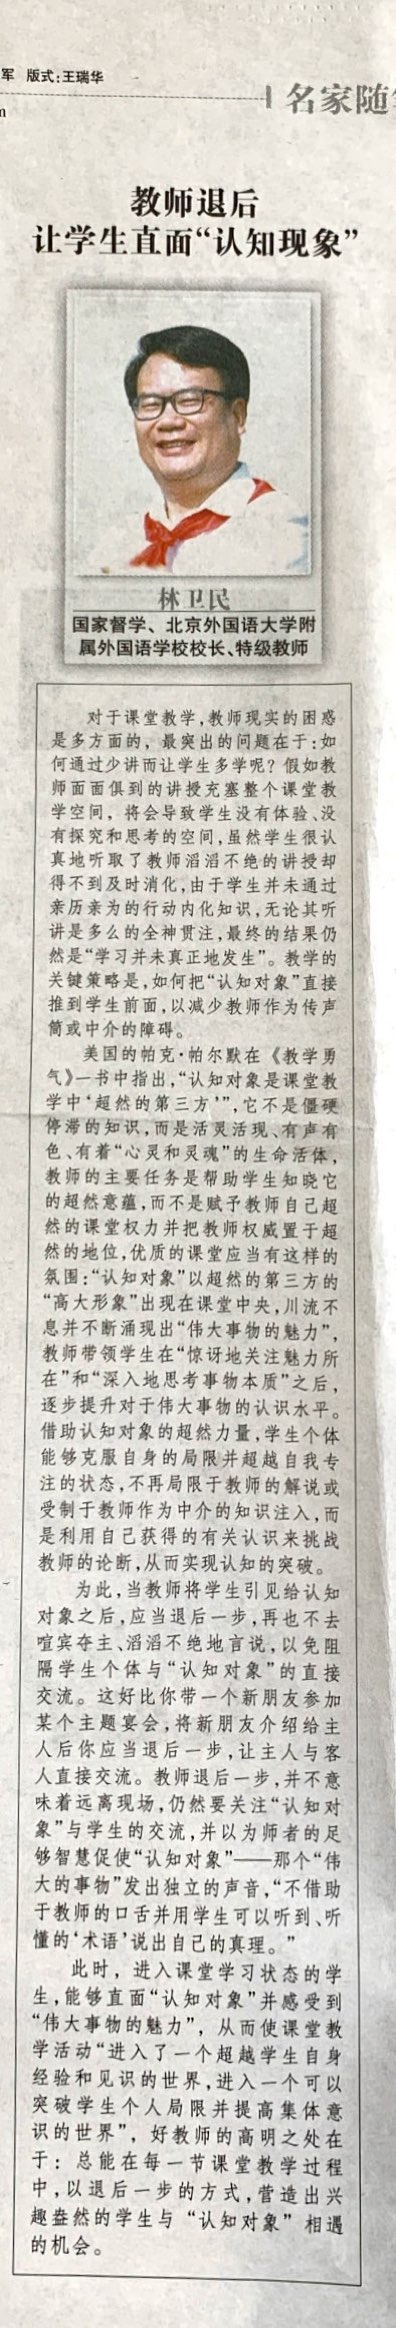 军 版式:王瑞华
名家随
教师退后
让学生直面“认知现象”
林卫民
国家督学、北京外国语大学附
属外国语学校校长、特级教师
对于课堂教学,教师现实的困惑
是多方面的，最突出的问题在于:如
何通过少讲而让学生多学呢？假如教
师面面俱到的讲授充塞整个课堂教
学空间，将会导致学生没有体验、没
有探究和思考的空间,虽然学生很认
真地听取了教师滔滔不绝的讲授却
得不到及时消化,由于学生并未通过
亲历亲为的行动内化知识,无论其听
讲是多么的全神贯注,最终的结果仍
然是“学习并未真正地发生”。教学的
关键策略是,如何把“认知对象”直接
推到学生前面,以减少教师作为传声
筒或中介的障碍。
美国的帕克·帕尔默在《教学勇
气》一书中指出,“认知对象是课堂教
学中‘超然的第三方’”,它不是僵硬
停滞的知识,而是活灵活现、有声有
色、有着“心灵和灵魂”的生命活体,
教师的主要任务是帮助学生知晓它
的超然意蕴,而不是赋予教师自己超
然的课堂权力并把教师权威置于超
然的地位,优质的课堂应当有这样的
氛围:“认知对象”以超然的第三方的
“高大形象”出现在课堂中央,川流不
息并不断涌现出“伟大事物的魅力”,
教师带领学生在“惊讶地关注魅力所
在”和“深入地思考事物本质”之后,
逐步提升对于伟大事物的认识水平。
借助认知对象的超然力量,学生个体
能够克服自身的局限并超越自我专
注的状态,不再局限于教师的解说或
受制于教师作为中介的知识注入,而
是利用自己获得的有关认识来挑战
教师的论断,从而实现认知的突破。
为此,当教师将学生引见给认知
对象之后,应当退后一步,再也不去
喧宾夺主、滔滔不绝地言说,以免阻
隔学生个体与“认知对象”的直接
交流。这好比你带一个新朋友参加
某个主题宴会,将新朋友介绍给主
人后你应当退后一步,让主人与客
人直接交流。教师退后一步,并不意
味着远离现场,仍然要关注“认知对
象”与学生的交流,并以为师者的足
够智慧促使“认知对象”——那个“伟
大的事物”发出独立的声音,“不借助
于教师的口舌并用学生可以听到、听
懂的‘术语’说出自己的真理。”
此时，进入课堂学习状态的学
生,能够直面“认知对象”并感受到
“伟大事物的魅力”，从而使课堂教
学活动“进入了一个超越学生自身
经验和见识的世界,进入一个可以
突破学生个人局限并提高集体意
识的世界”，好教师的高明之处在
于：总能在每一节课堂教学过程
中,以退后一步的方式,营造出兴
趣盎然的学生与“认知对象”相遇
的机会。